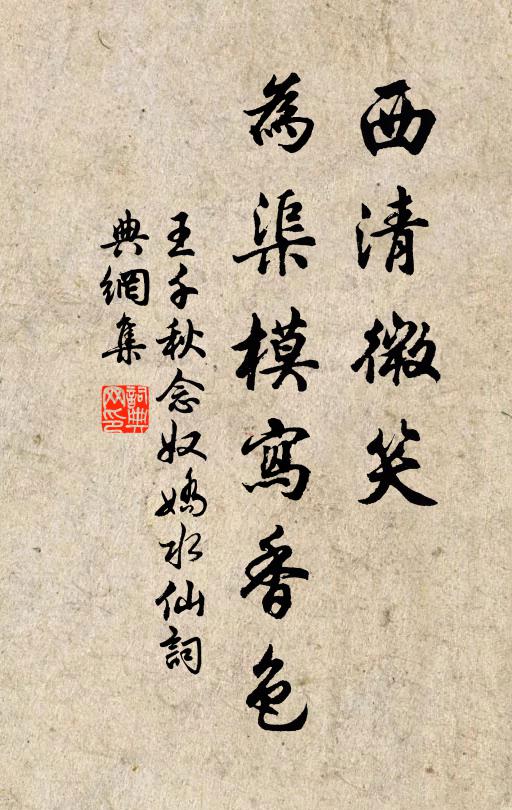 西清微笑
為渠模寫香色
王千秋念奴嬌水仙詞
典網集
詞典網印